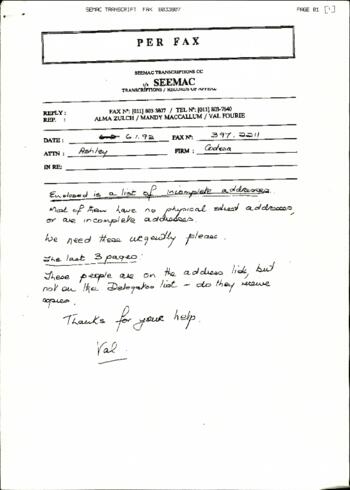 SEEMAC TRANSCRIPT FAX 8033807 PAGE 01
PER FAX
SEEMAC TRANSCRIPTIONS CC
t/a SEEMAC
TRANSCRIPTIONS / RECORDS OF APPEAL
REPLY : FAX Nº: [011] 803-3807 / TEL Nº: [011] 803-7640
REF. : ALMA ZULCH / MANDY MACCALLUM / VAL FOURIE
DATE : 6.1.92 FAX Nº: 397.2211
ATTN : Ashley FIRM : Codesa
IN RE:
Enclosed is a list of incomplete addresses.
Most of them have no physical addresses,
or are incomplete addresses.
We need these urgently please.
The last 3 pages:
These people are on the address list, but
not on the Delegates list - do they receive
copies.
Thanks for your help.
Val.